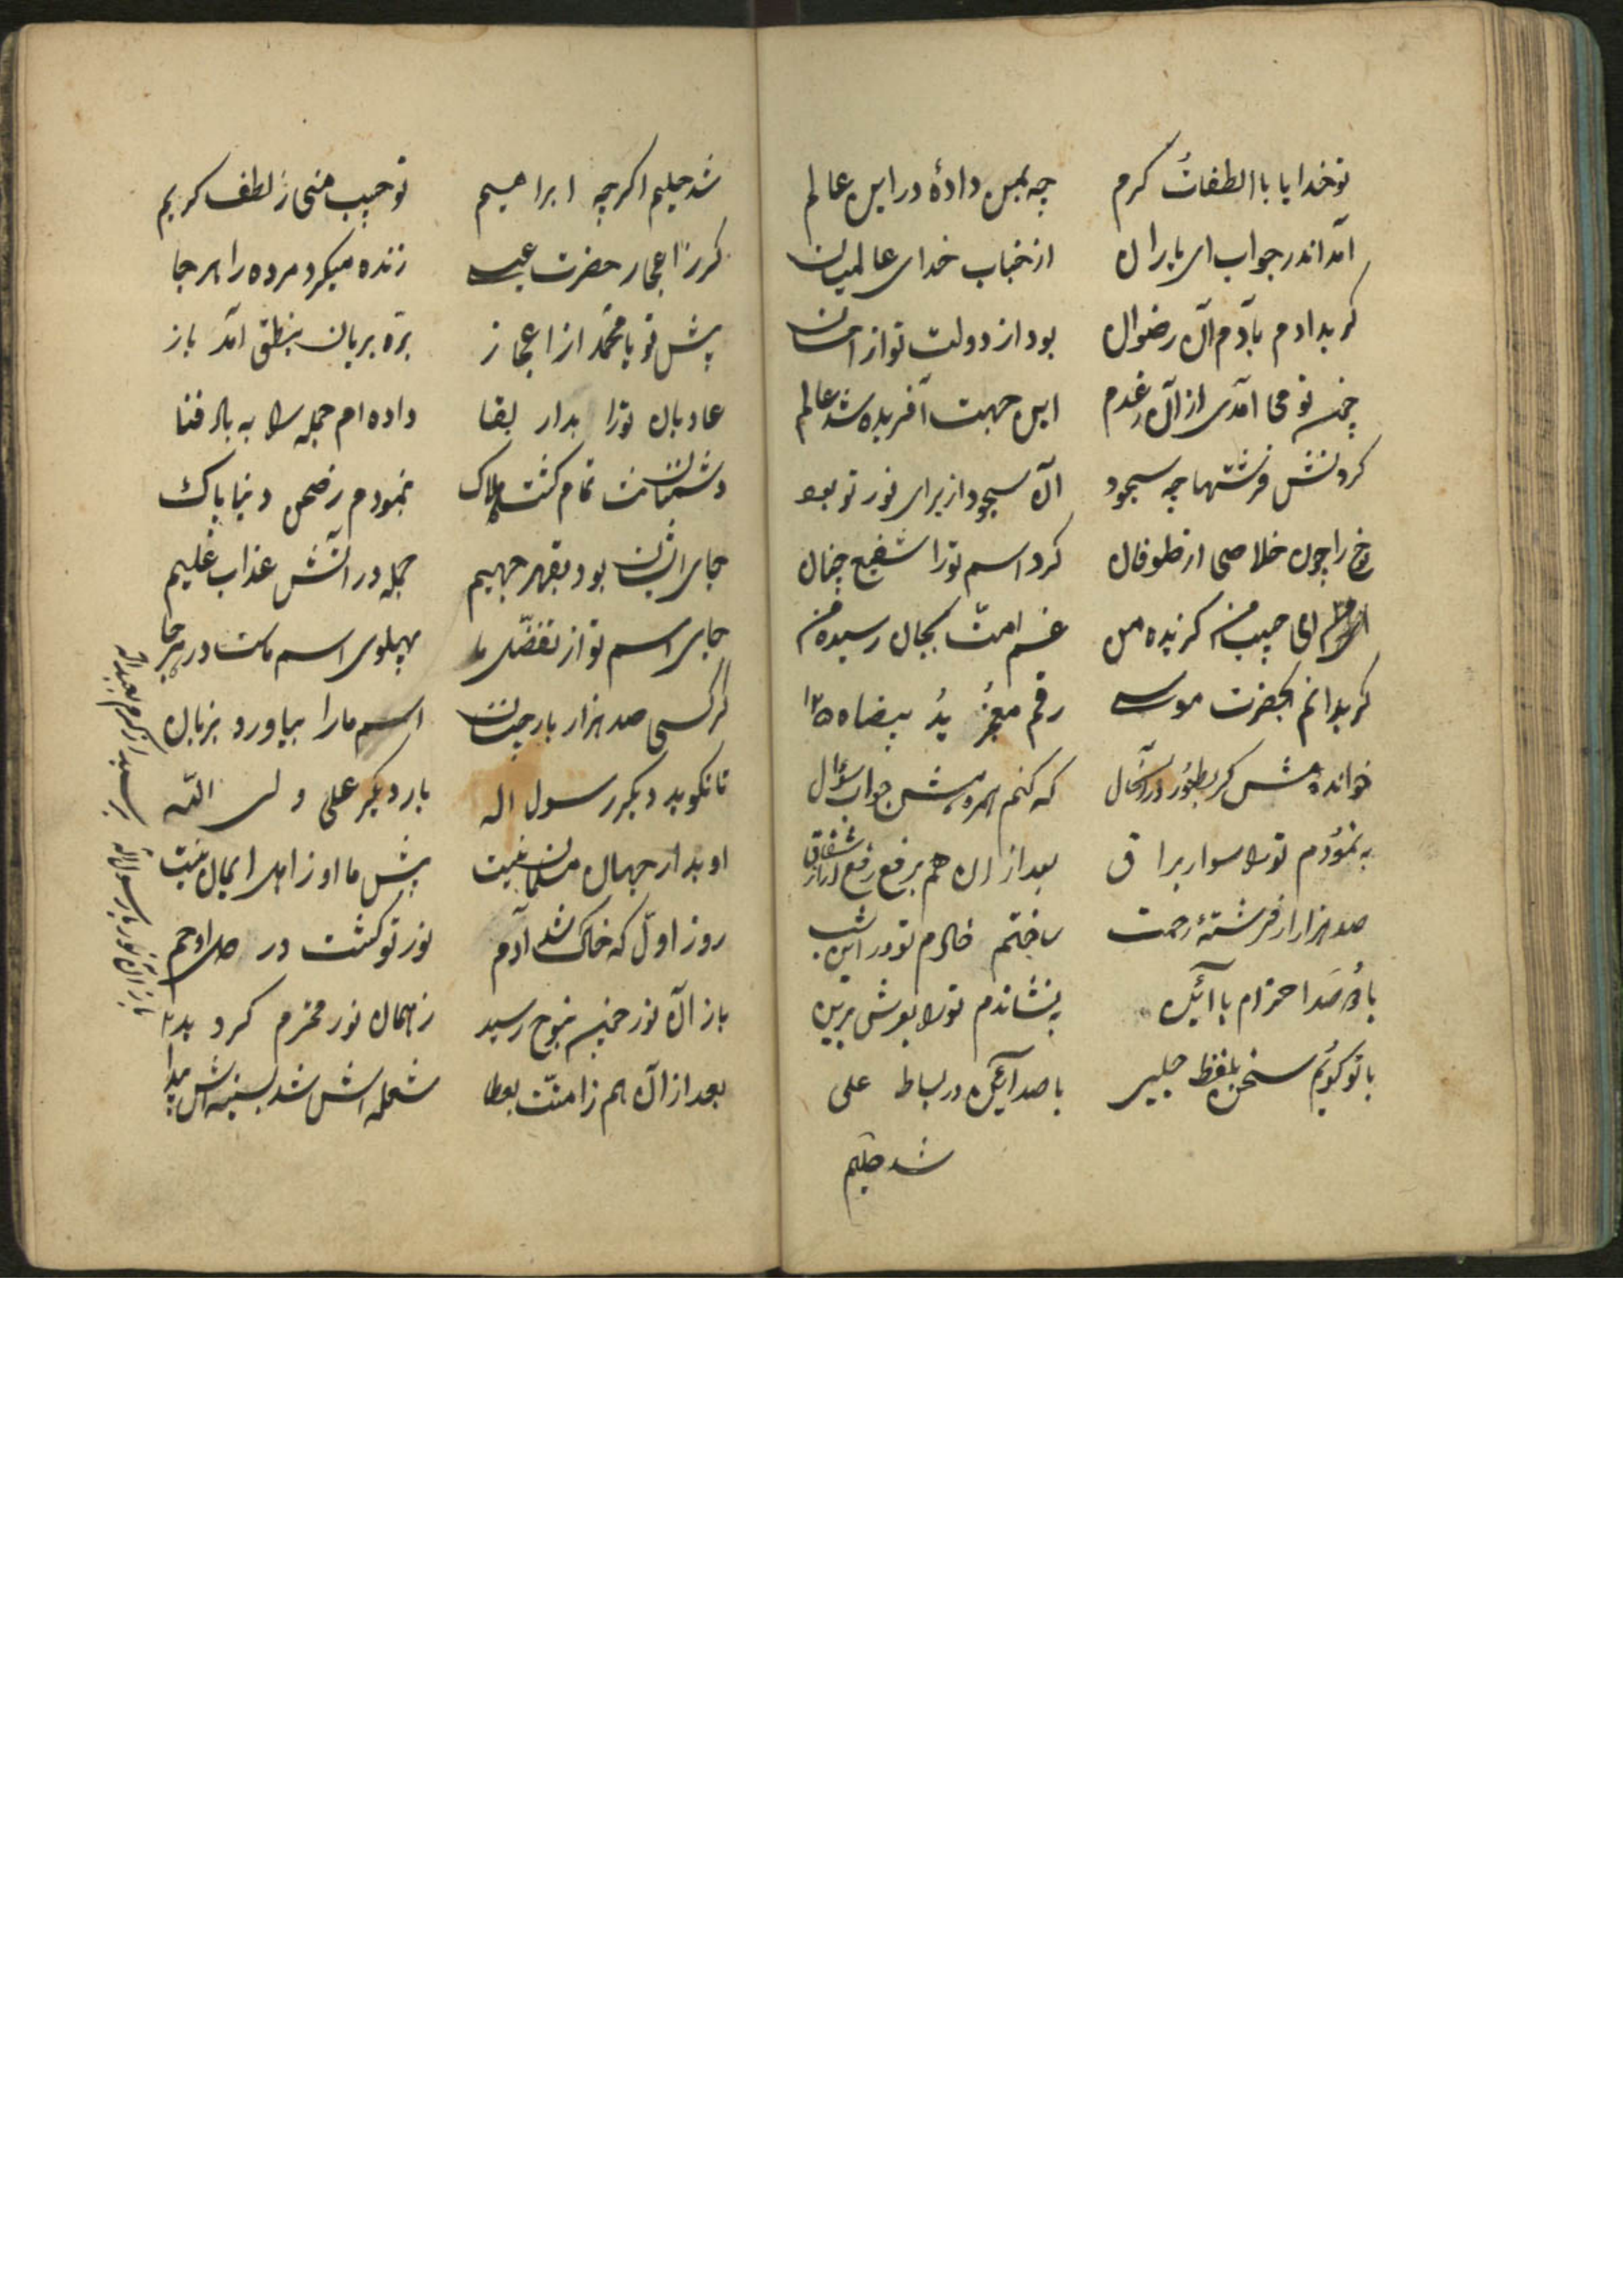 تو خدایا با الطفات کرم چه بمن دادهٔ در این عالم
آمد اندر جواب ای یاران از جناب خدای عالمیان
کر بدادم بآدم آن رضوان بود از دولت تو از احسان
چونکه تو می آمدی از آن رغدم این جهت آفریده شد عالم
کردنش فرشتها چه سجود آن سجود از برای نور تو بود
نوح را چون خلاصی از طوفان کرد اسم تورا شفیع چنان
ای حبیب من کزیده من غم امت بجان رسیده من
کر بدانم بحضرت موسی رقم معجز ید بیضاه
خوانده مش کر بطور در آنحال که کنم همرهش جواب سؤال
به نمودم تورا سوار براق بعد از ان هم برفع رفع
صد هزار از فرشتهٔ رحمت ساختم خادم تو در این شب
با دو صد احترام با آئین بنشاندم تورا بعرش برین
با تو کویم سخن بلفظ جلی با صد آئین در بساط علی
شد حلیم
شد حلیم اکرچه ابراهیم تو حبیب منی ز لطف کریم
کر ز اعجاز حضرت عیسی زنده میکرد مرده را هر جا
پیش تو یا محمد از اعجاز بره بریان بنطق آمد باز
عادیان تورا بدار بقا داده ام جمله را به باد فنا
دشمنانت تمام کشت هلاک نمودم ز صحن دنیا پاک
جای ایشان بود بقهر جهیم جمله در آتش عذاب غلیم
جای اسم تو از تفضل ما پهلوی اسم ماست در هر جا
کر کسی صد هزار بار چنان اسم مارا بیاورد بزبان
تا نکوید دیکر رسول اله بار دیکر علی ولی الله
او بدار جهان مسلمان نیست پیش ما او ز اهل ایمان نیست
روز اول که خاک شد آدم نور تو کشت در صلب او حم
باز آن نور چونکه بنوح رسید ز همان نور محترم کرد
بعد از آن هم ز امت بعطا شعله اش شد بسینه اش پیدا
باز آن نور یا رسول اله برسید از کرم بعبد اله